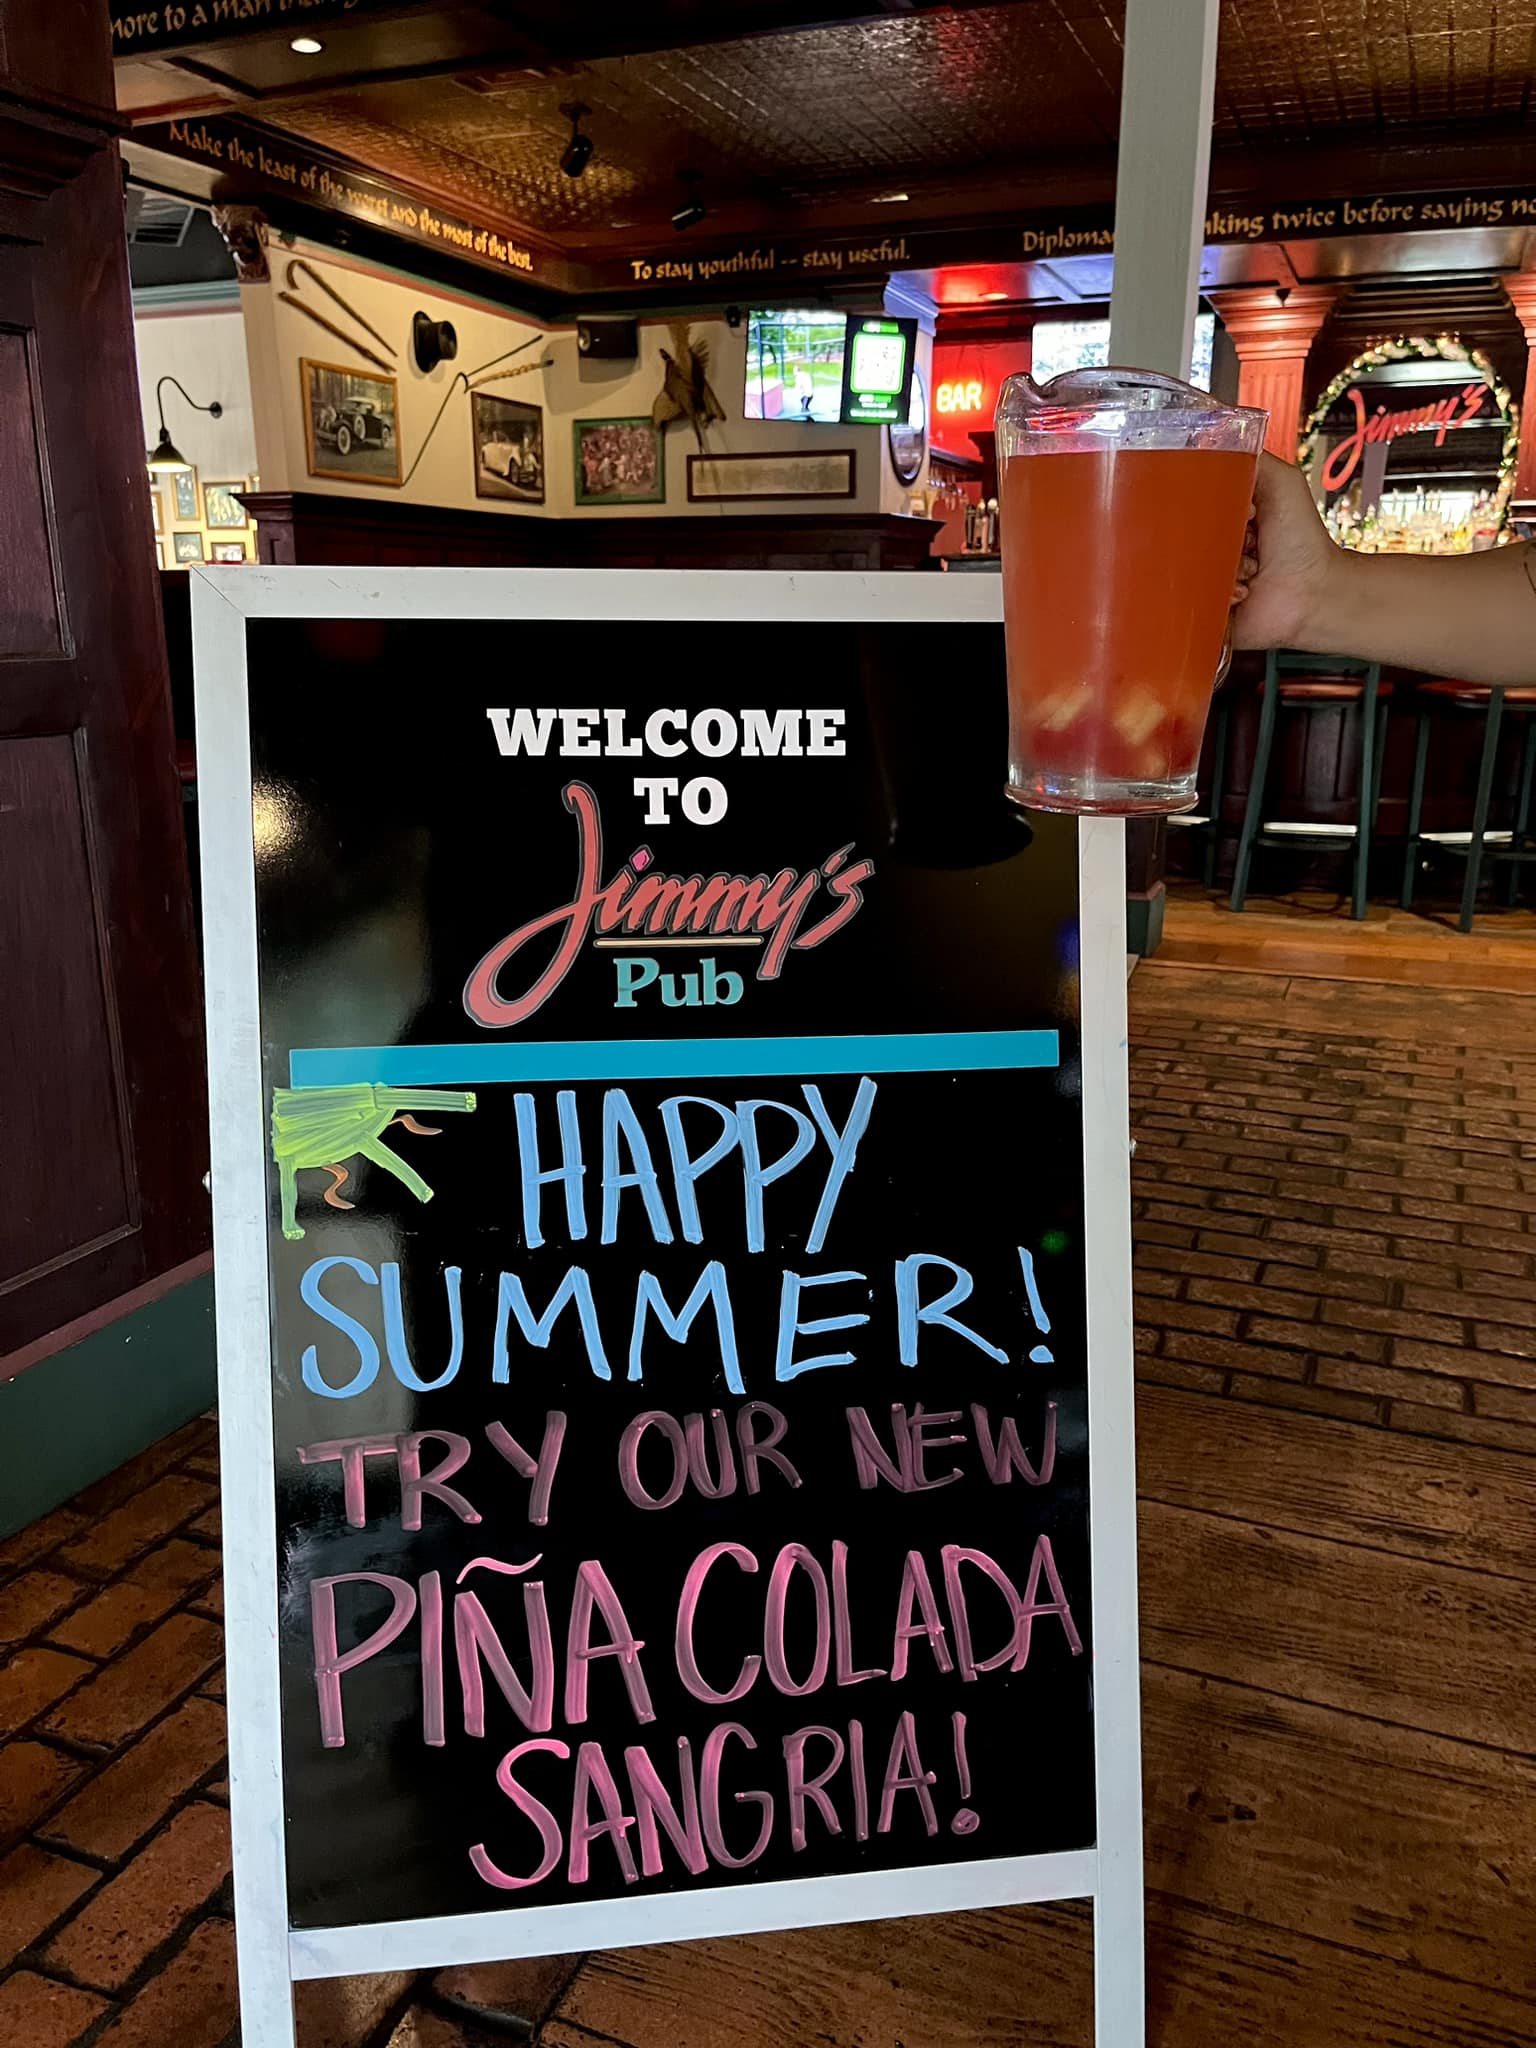 more to a man than
Make the least of the worst and the most of the best.
To stay youthful -- stay useful.
Diploma
nking twice before saying no
BAR
Jimmy's
WELCOME
TO
Jimmy's
Pub
HAPPY
SUMMER!
TRY OUR NEW
PIÑA COLADA
SANGRIA!